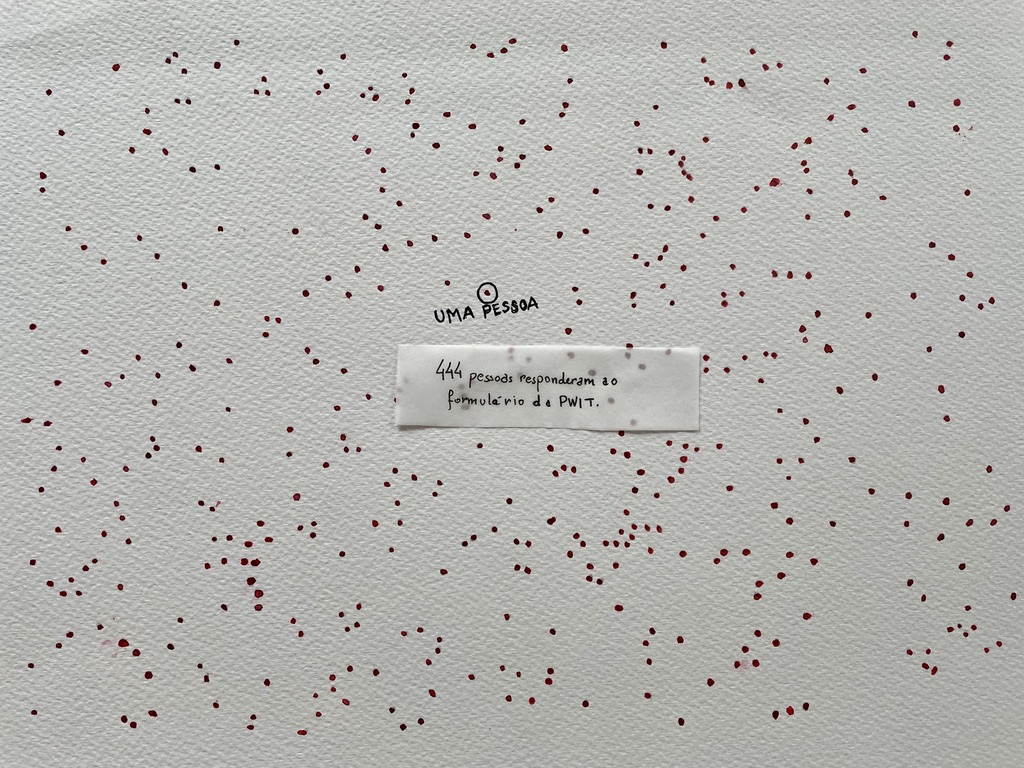 UMA PESSOA
444 pessoas responderam ao
formulário da PWIT.